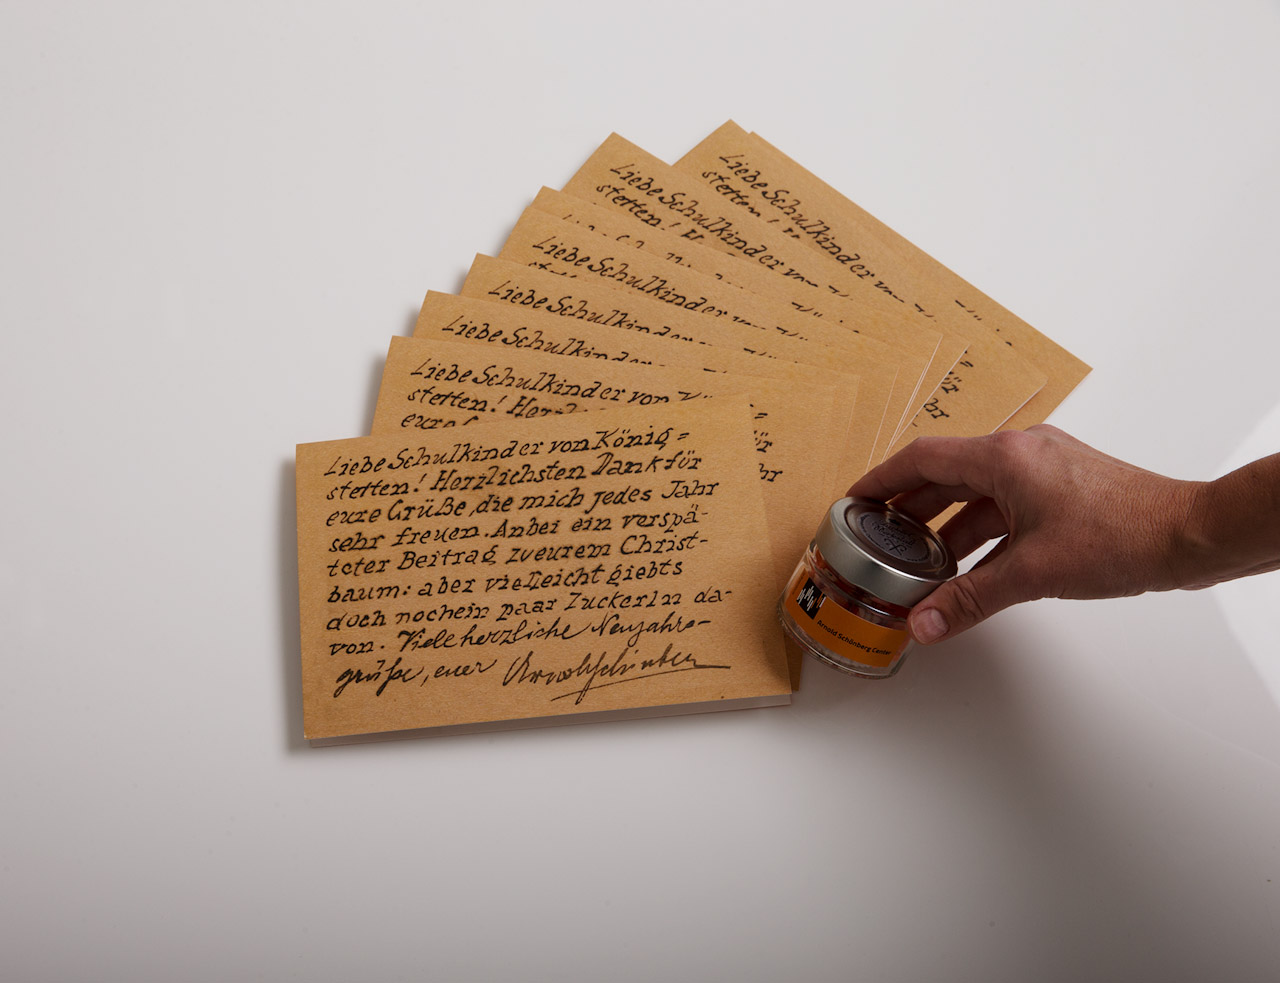 Liebe Schulkinder von König=
stetten! Herzlichsten Dank für
eure Grüße, die mich jedes Jahr
sehr freuen. Anbei ein verspä-
teter Beitrag zu eurem Christ-
baum: aber vielleicht giebts
doch noch ein paar Zuckerln da-
von. Viele herzliche Neujahrs-
grüße, euer Arnold Schönberg
Liebe Schulkinder von
stetten! Herz
eure
für
Jahr
Liebe Schulkinder
Liebe Schulkinder
Liebe Schulkinder von
Liebe Schulkinder von
stetten! H
Liebe Schulkinder von
stetten!
für
Jahr
Arnold Schönberg Center